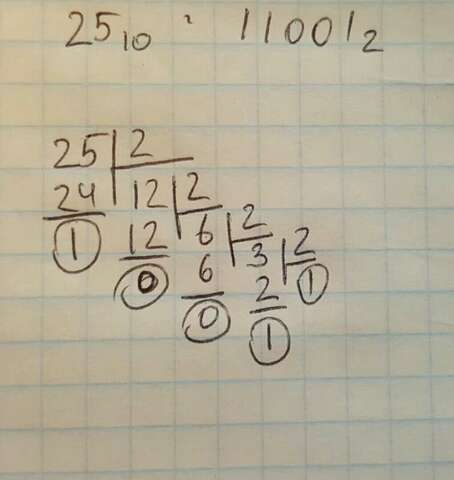 25₁₀ : 11001₂
25 2
24 12 2
1 12 6 2
0 6 3 2
0 2 1
1